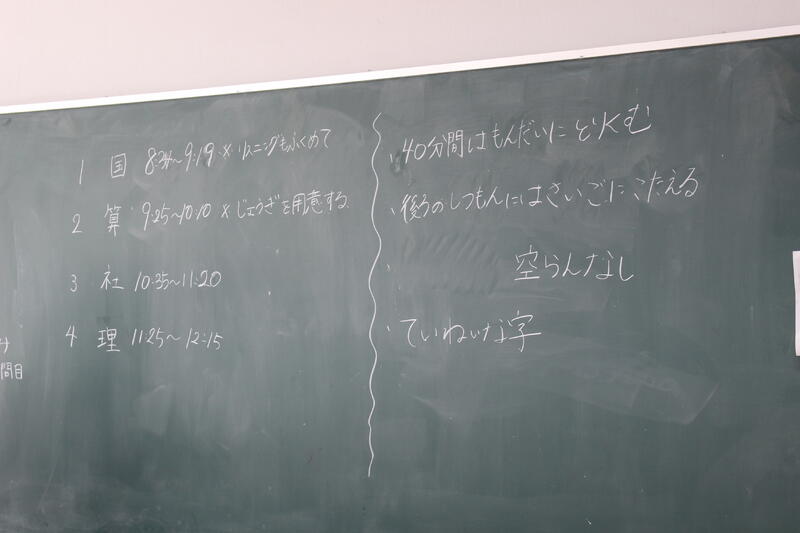 1 国 8:34~9:19 ※リスニングもふくめて
2 算 9:25~10:10 ※じょうぎを用意する
3 社 10:35~11:20
4 理 11:25~12:15
問目
・40分間はもんだいにとりくむ
・後ろのしつもんにはさいごにこたえる
空らんなし
・ていねいな字